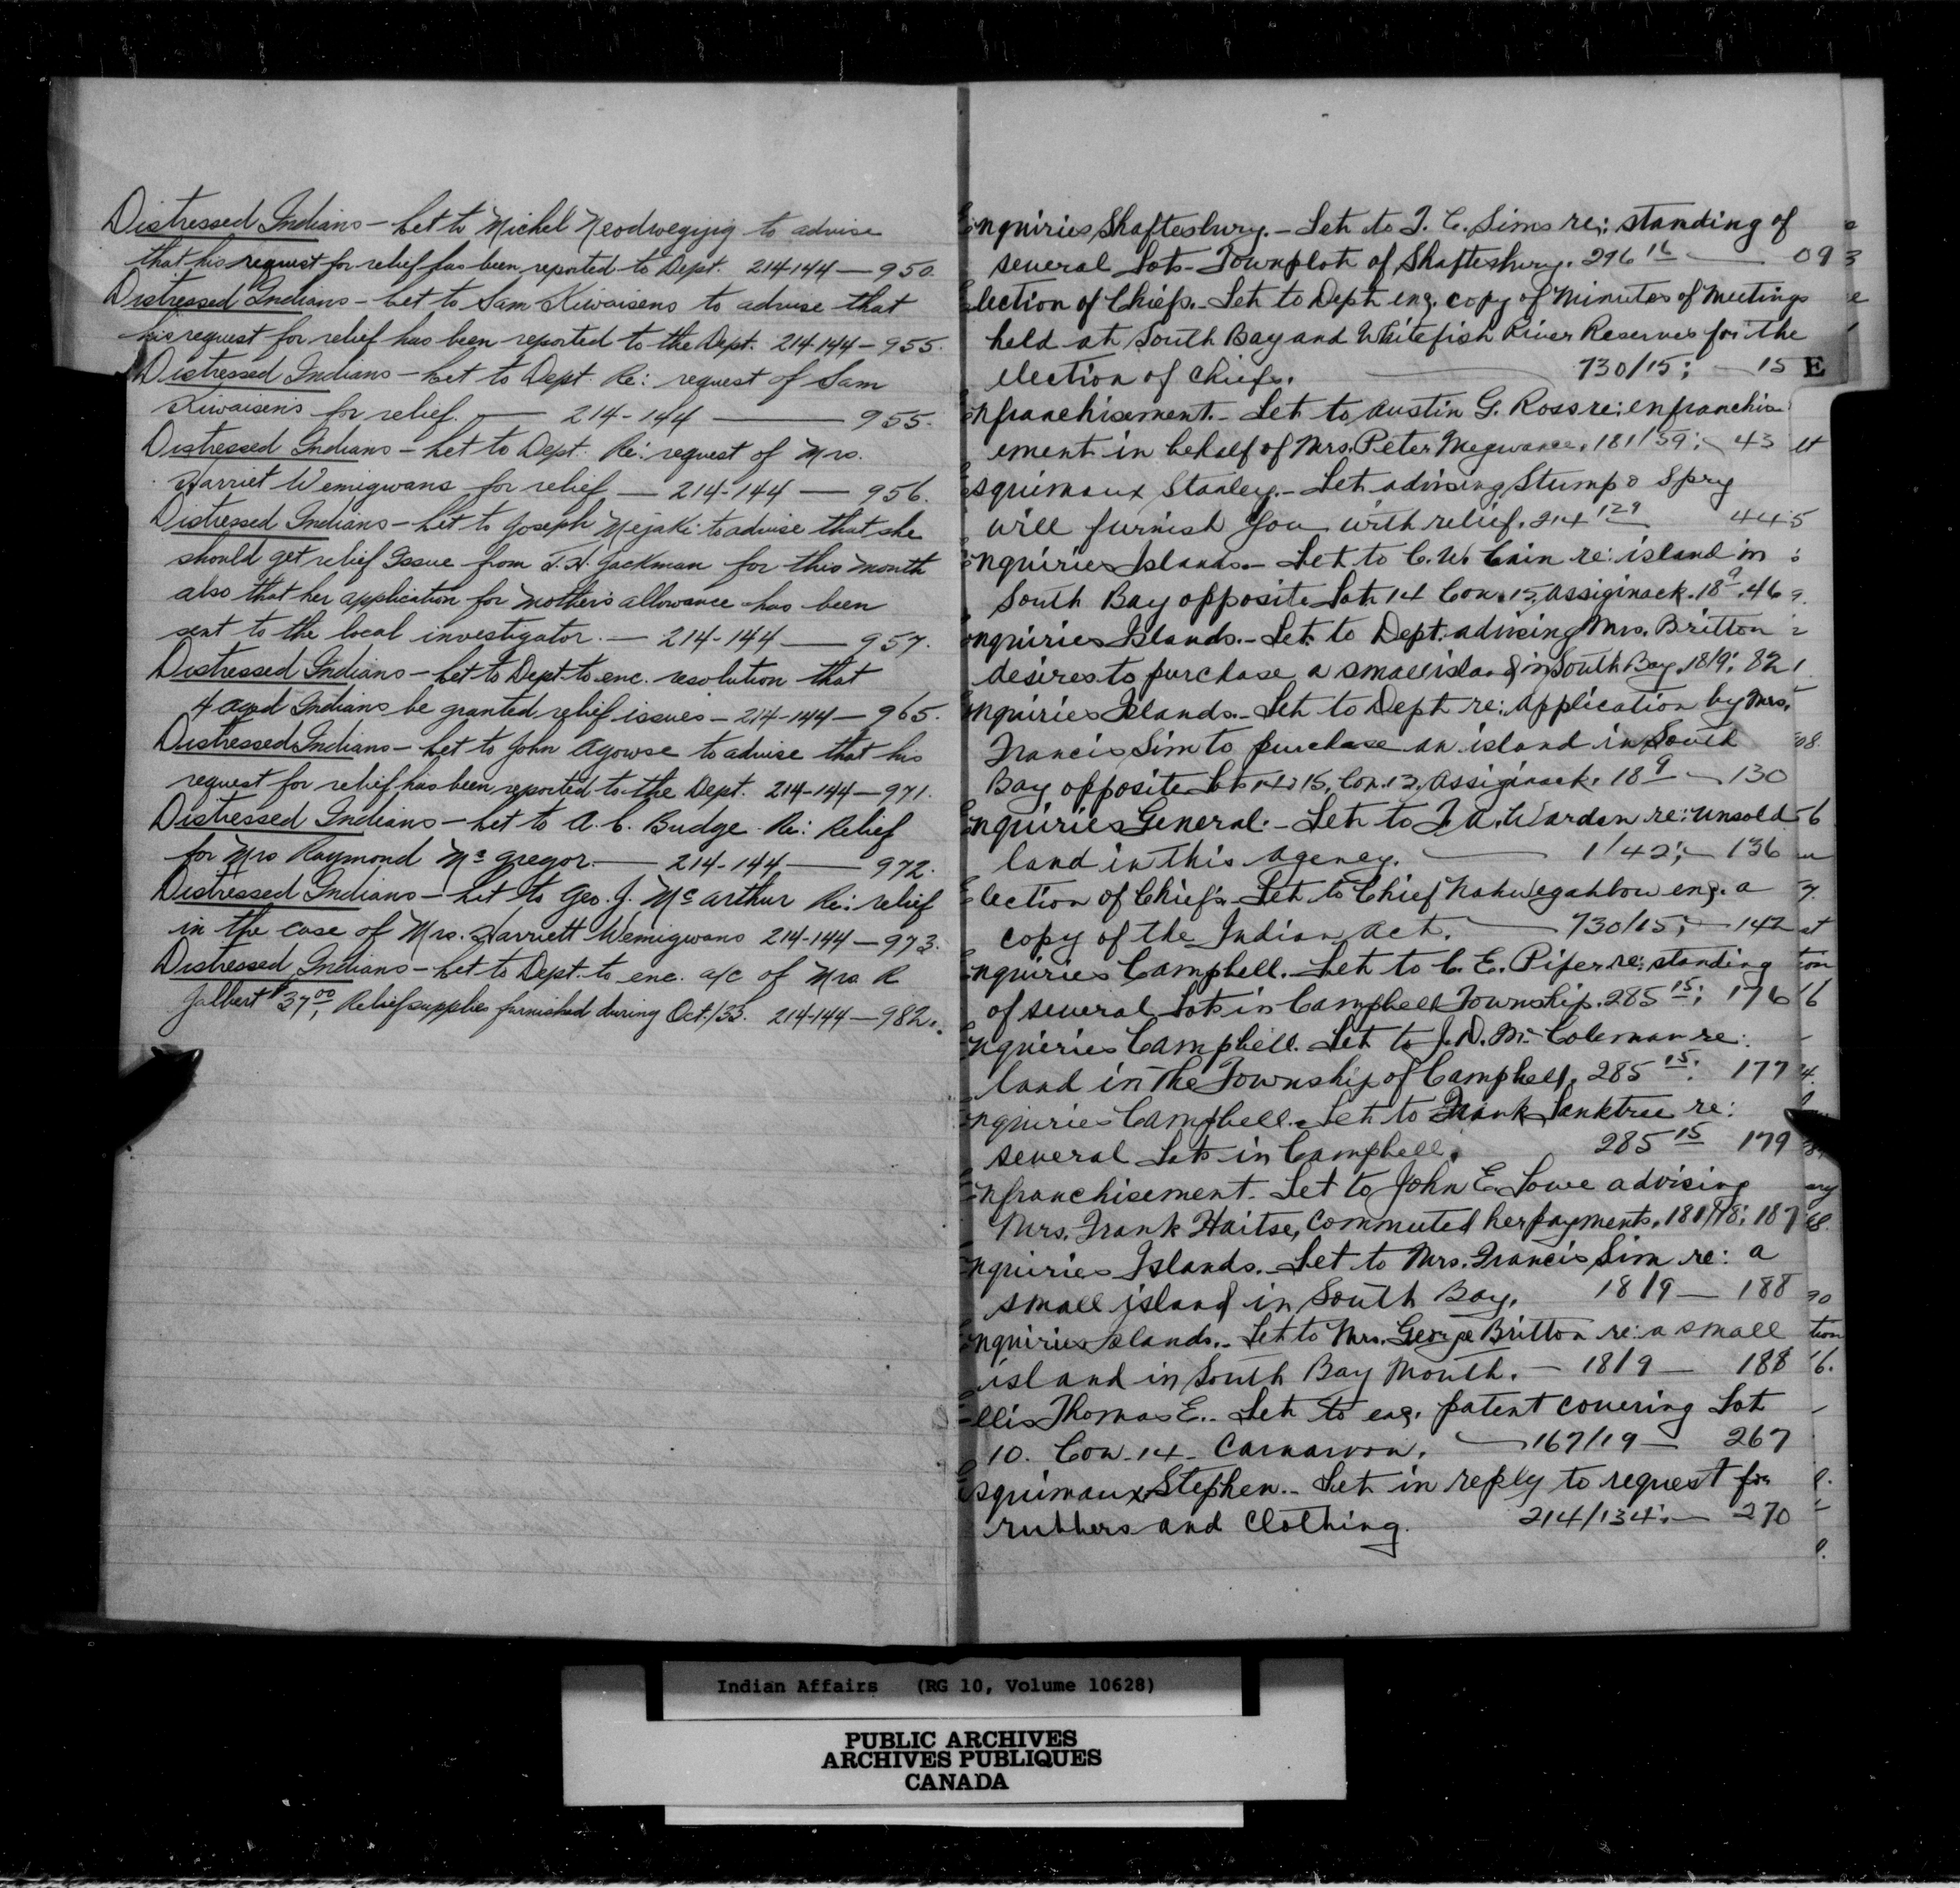 Distressed Indians - Let to Michel Neodwegijig to advise
that his request for relief has been reported to Dept. 214-144 — 950.
Distressed Indians - Let to Sam Kiwaisens to advise that
his request for relief has been reported to the Dept. 214-144 — 955.
Distressed Indians - Let to Dept. Re: request of Sam
Kiwaisens for relief. — 214-144 — 955.
Distressed Indians - Let to Dept. Re: request of Mrs.
Harriet Wemigwans for relief — 214-144 — 956.
Distressed Indians - Let to Joseph Mejaki to advise that she
should get relief Issue from T.H. Jackman for this month
also that her application for mother's allowance has been
sent to the local investigator. — 214-144 — 957.
Distressed Indians - Let to Dept to enc. resolution that
4 aged Indians be granted relief issues — 214-144 — 965.
Distressed Indians - Let to John Agowse to advise that his
request for relief has been reported to the Dept. 214-144 — 971.
Distressed Indians - Let to A. C. Budge Re: Relief
for Mrs Raymond McGregor. — 214-144 — 972.
Distressed Indians - Let to Geo. J. McArthur Re: relief
in the case of Mrs. Harriett Wemigwans 214-144 — 973.
Distressed Indians - Let to Dept. to enc. a/c of Mrs R
Jalbert $37.00, Relief supplies furnished during Oct./33. 214-144 — 982.
Enquiries Shaftesbury. - Let. to T. C. Sims re: standing of
several Lots - Townplot of Shaftesbury. 296 16 — 09 3
Election of Chiefs. - Let. to Dept. enc. copy of Minutes of Meetings
held at South Bay and Whitefish River Reserves for the
election of Chiefs. — 730/15; — 15 E
Enfranchisement. - Let. to Austin G. Ross re: enfranchis
ement in behalf of Mrs. Peter Megwance. 181/59; 43
Esquimaux Stanley. - Let. advising Stump & Spry
will furnish you with relief. 214 129 44
Enquiries Islands. - Let. to C. W. Cain re: island in
South Bay opposite Lot 14 Con. 13, Assiginack. 18 9. 46
Enquiries Islands. - Let. to Dept. advising Mrs. Britton
desires to purchase a small island in South Bay. 18/9; 82
Enquiries Islands. - Let. to Dept. re: application by Mrs.
Francis Sim to purchase an island in South
Bay opposite Lots 14 & 15, Con. 13, Assiginack. 18 9 — 130
Enquiries General. - Let. to J. A. Warden re: unsold
land in this Agency. — 1/42; — 136
Election of Chiefs. Let. to Chief Nahwegahbow enc. a
copy of the Indian Act. — 730/15; — 142
Enquiries Campbell. Let. to C. E. Pifer re: standing
of several Lots in Campbell Township. 285 15; 176
Enquiries Campbell. Let. to J. D. Mc Coleman re:
land in the Township of Campbell. 285 15; 177
Enquiries Campbell. - Let. to Frank Lanktree re:
several Lots in Campbell. 285 15 179
Enfranchisement. Let to John E. Lowe advising
Mrs. Frank Haitse, commuted her payments. 181/18; 187
Enquiries Islands. Let to Mrs. Francis Sim re: a
small island in South Bay. 18/9 — 188
Enquiries Islands. - Let. to Mrs. George Britton re: a small
island in South Bay Mouth. — 18/9 — 188
Ellis Thomas E. - Let. to enc. patent covering Lot
10. Con. 14 - Carnarvon. — 167/19 — 267
Esquimaux Stephen. - Let. in reply to request for
rubbers and clothing. 214/134; — 270
Indian Affairs (RG 10, Volume 10628)
PUBLIC ARCHIVES
ARCHIVES PUBLIQUES
CANADA